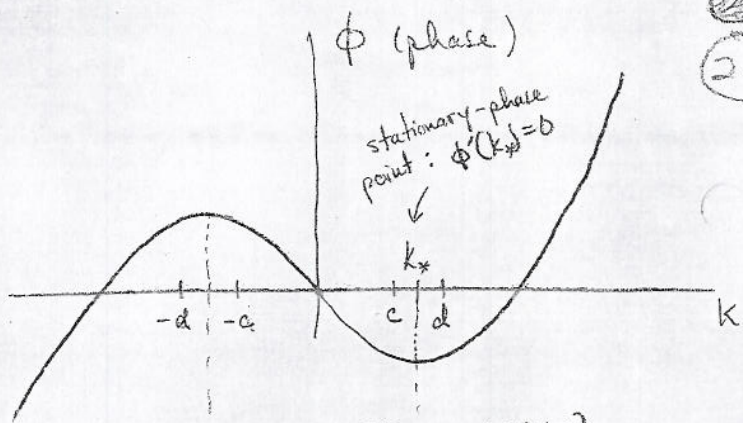 ϕ (phase)
2
stationary-phase
point : ϕ'(k*)=0
k*
-d -c c d
k